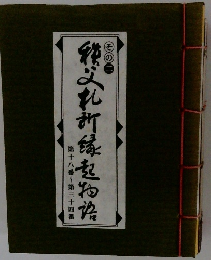 その二
秩父札所縁起物語
第十八番〜第三十四番